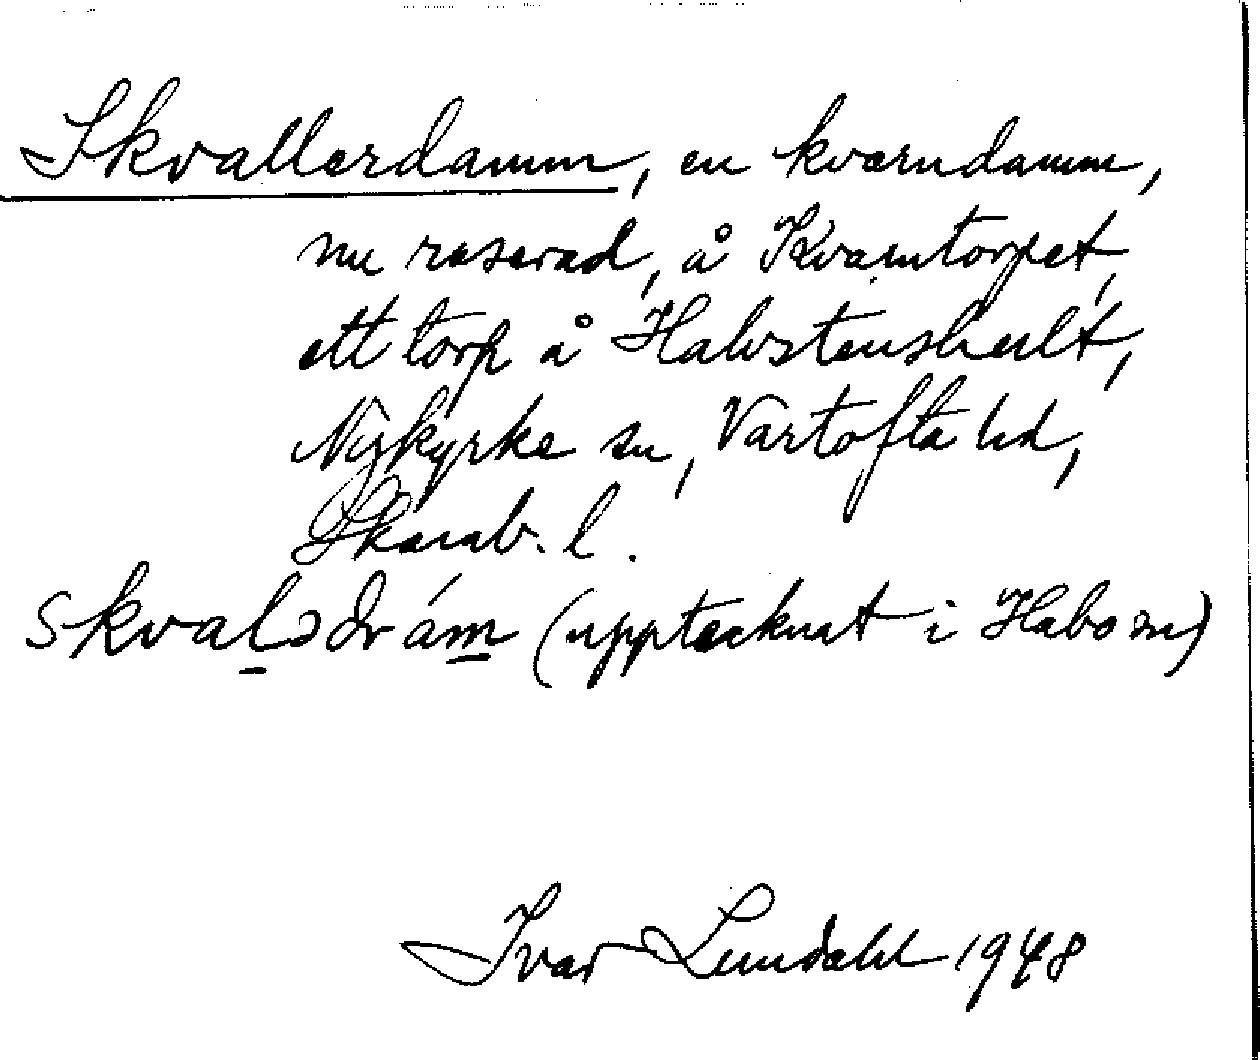 Skvallerdamm, en kvarndamm,
nu raserad, å Kvarntorpet,
ett torp å Halvstenshult,
Nykyrke sn, Vartofta hd,
Skarab. l.
(upptecknat i Habo sn)
Ivar Lundahl 1948